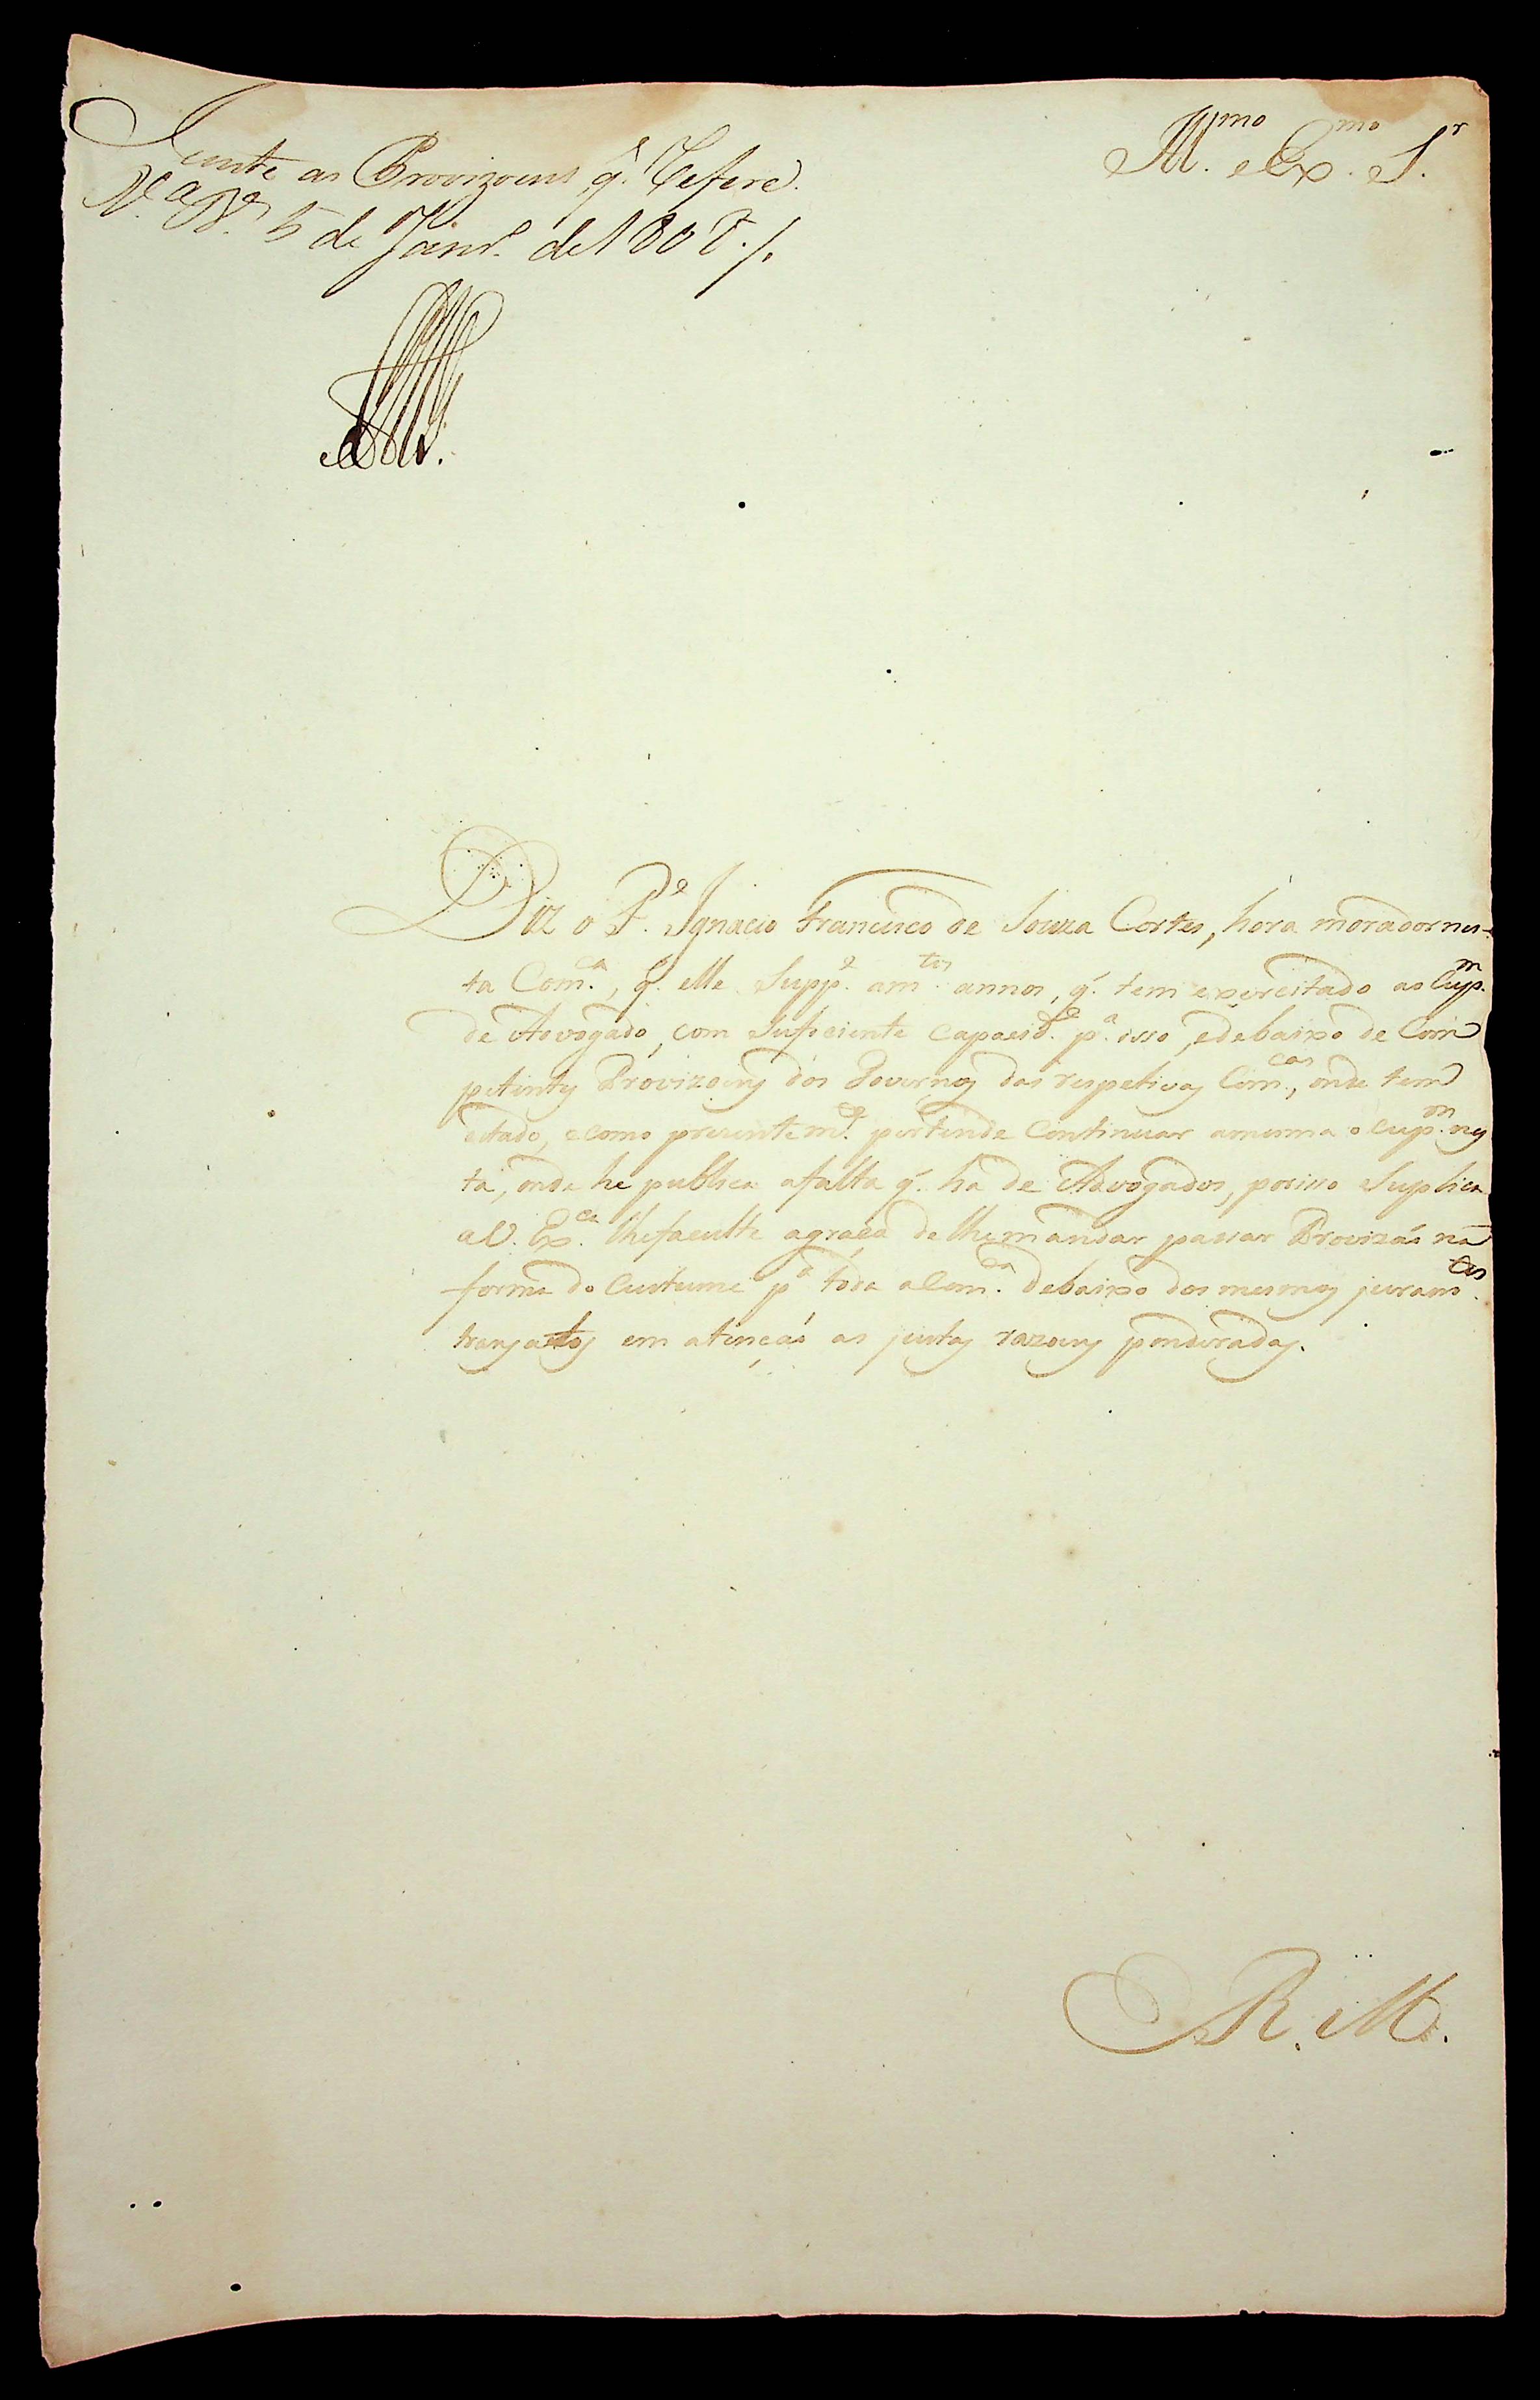 Junte as Provizoens q. refere.
V.ª B.ª 5 de Janr.º de 1807./.
Ill.mo e Ex.mo S.r
Diz o P.e Ignacio Francisco de Souza Cortes, hora morador nes-
ta Com.ca, q. elle Supp.e a m.tos annos, q. tem exercitado a ocup.m
de Advogado, com suficiente capacid.e p.a isso, e debaixo de Com
petentes Provizoens dos Governos das respetivas Com.cas, onde tem
estado, e como prezentem.e pertende continuar a mesma ocup.m nes
ta, onde he publica a falta q. ha de Advogados, por isso Suplica
a V. Ex.ca lhe faculte a graça de lhe mandar passar Provizaõ na
forma do Custume p.a toda a Com.ca debaixo dos mesmos juram.tos
transatos em atençaõ as justas razoens ponderadas.
R. M.